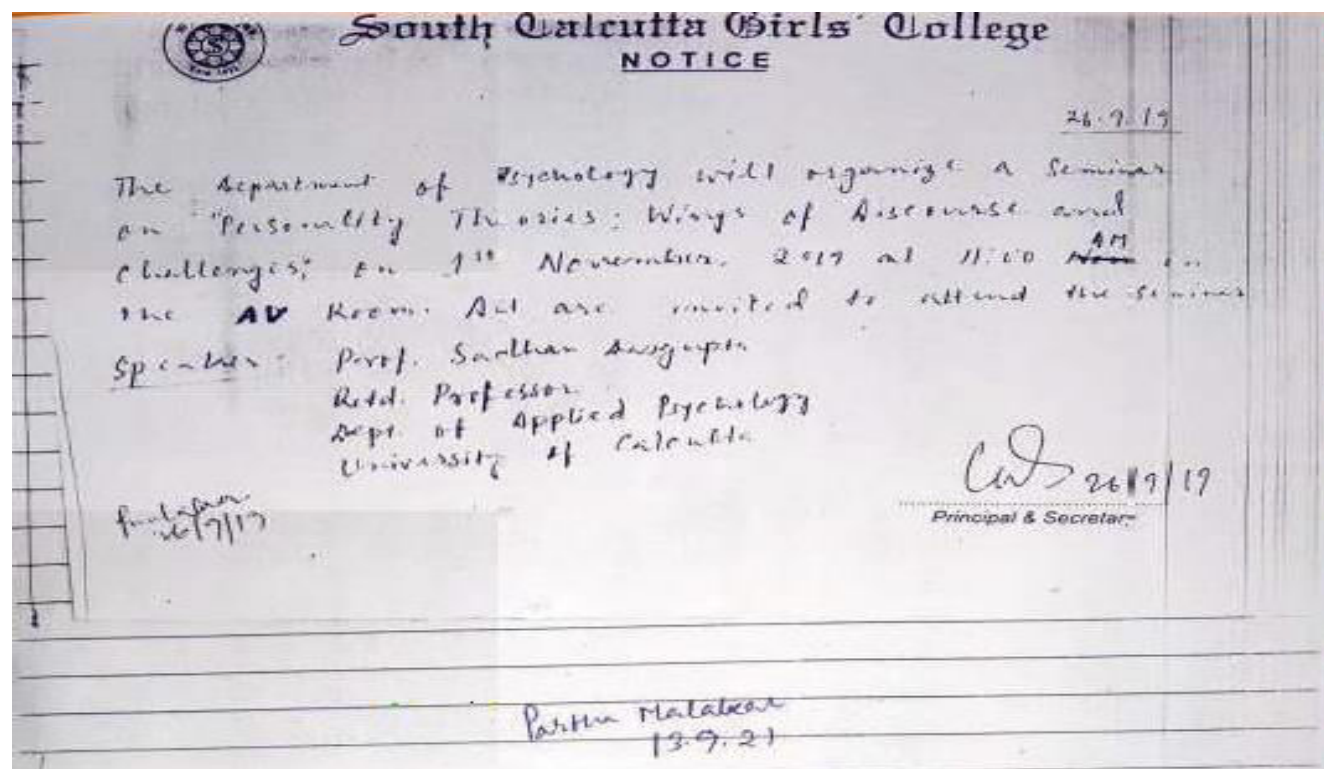 South Calcutta Girls' College
NOTICE
26.9.19
The Department of Psychology will organize a Seminar
on "Personality Theories: Wings of Discourse and
Challenges" on 1st November, 2019 at 11:00 AM in
the AV Room. All are invited to attend the seminar
Speaker: Prof. Sadhan Dasgupta
Retd. Professor
Dept. of Applied Psychology
University of Calcutta
26/9/19
26/9/19
Principal & Secretary
Partha Malakar
13.9.21